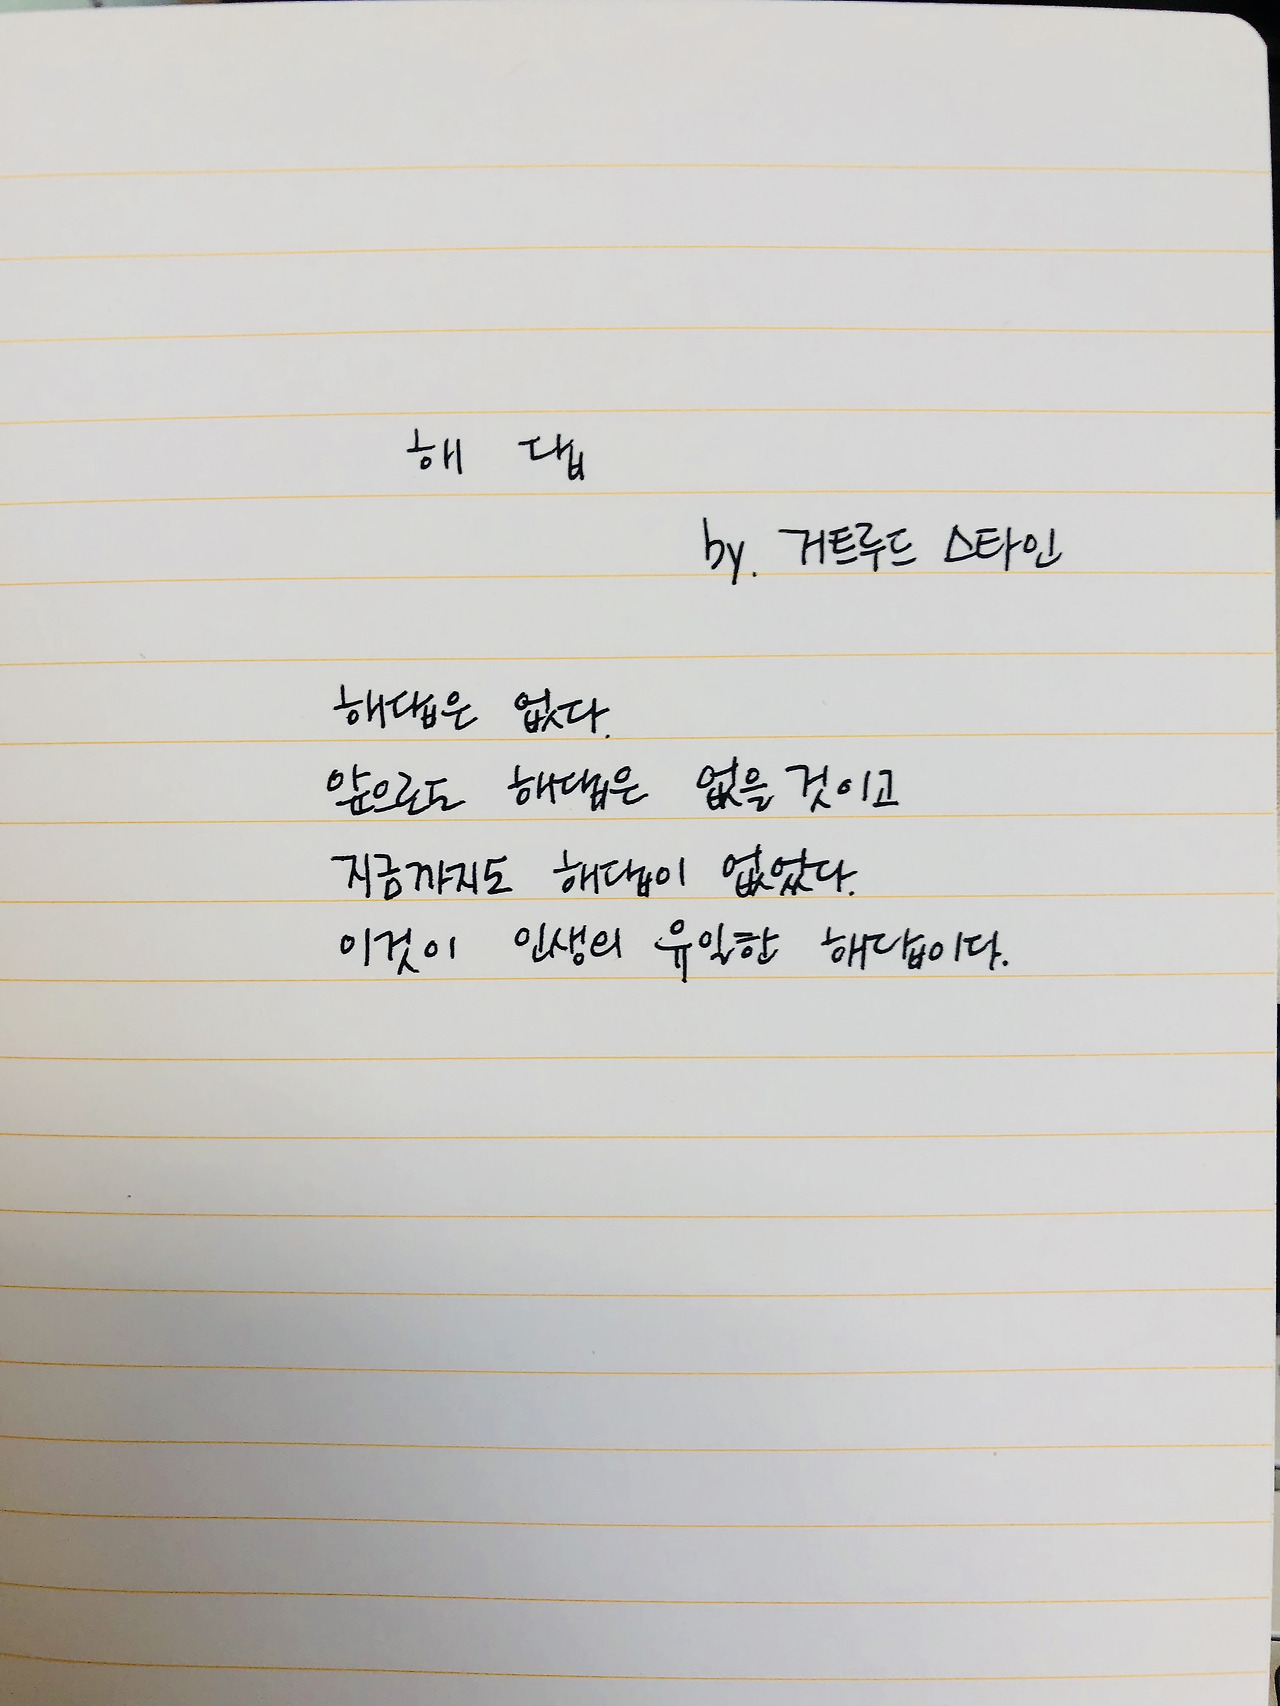 해 답
by. 거트루드 스타인
해답은 없다.
앞으로도 해답은 없을 것이고
지금까지도 해답이 없었다.
이것이 인생의 유일한 해답이다.